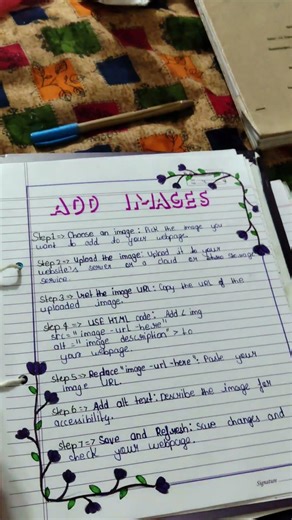 ADD IMAGES
Step 1 => Choose an image : Pick the image you
want to add to your webpage.
Step 2 => Upload the image : Upload it to your
website's server or a cloud storage
service.
Step 3 => Get the image URL : Copy the URL of the
uploaded image.
Step 4 => USE HTML code : Add < img
src = "image-url-here"
alt = "image description" > to
your webpage.
Step 5 => Replace "image-url-here" : Paste your
image URL.
Step 6 => Add alt text : Describe the image for
accessibility.
Step 7 => Save and Refresh : Save changes and
check your webpage.
Signature